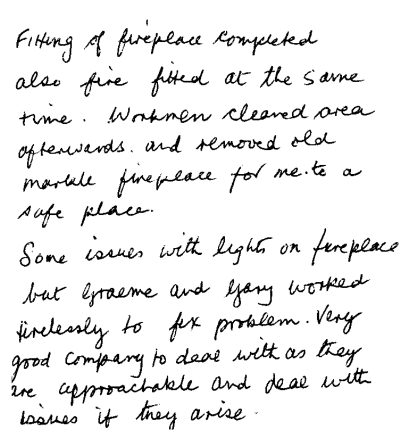 Fitting of fireplace completed
also fire fitted at the same
time. Workmen cleaned area
afterwards. and removed old
marble fireplace for me. to a
safe place.
Some issues with lights on fireplace
but Graeme and Gary worked
tirelessly to fix problem. Very
good company to deal with as they
are approachable and deal with
issues if they arise.